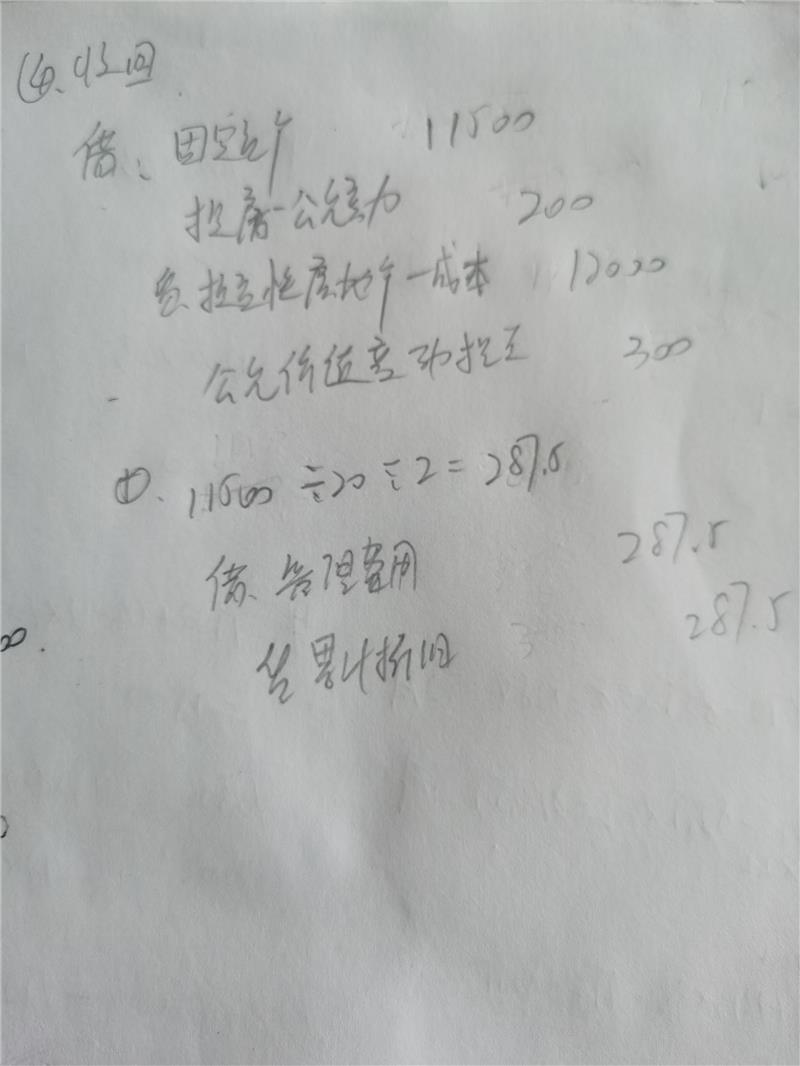 ④、收回
借、固定资产 11500
投房-公允变动 200
贷、投资性房地产-成本 12000
公允价值变动损益 300
①、11500÷20÷2=287.5
借、管理费用 287.5
贷 累计折旧 287.5